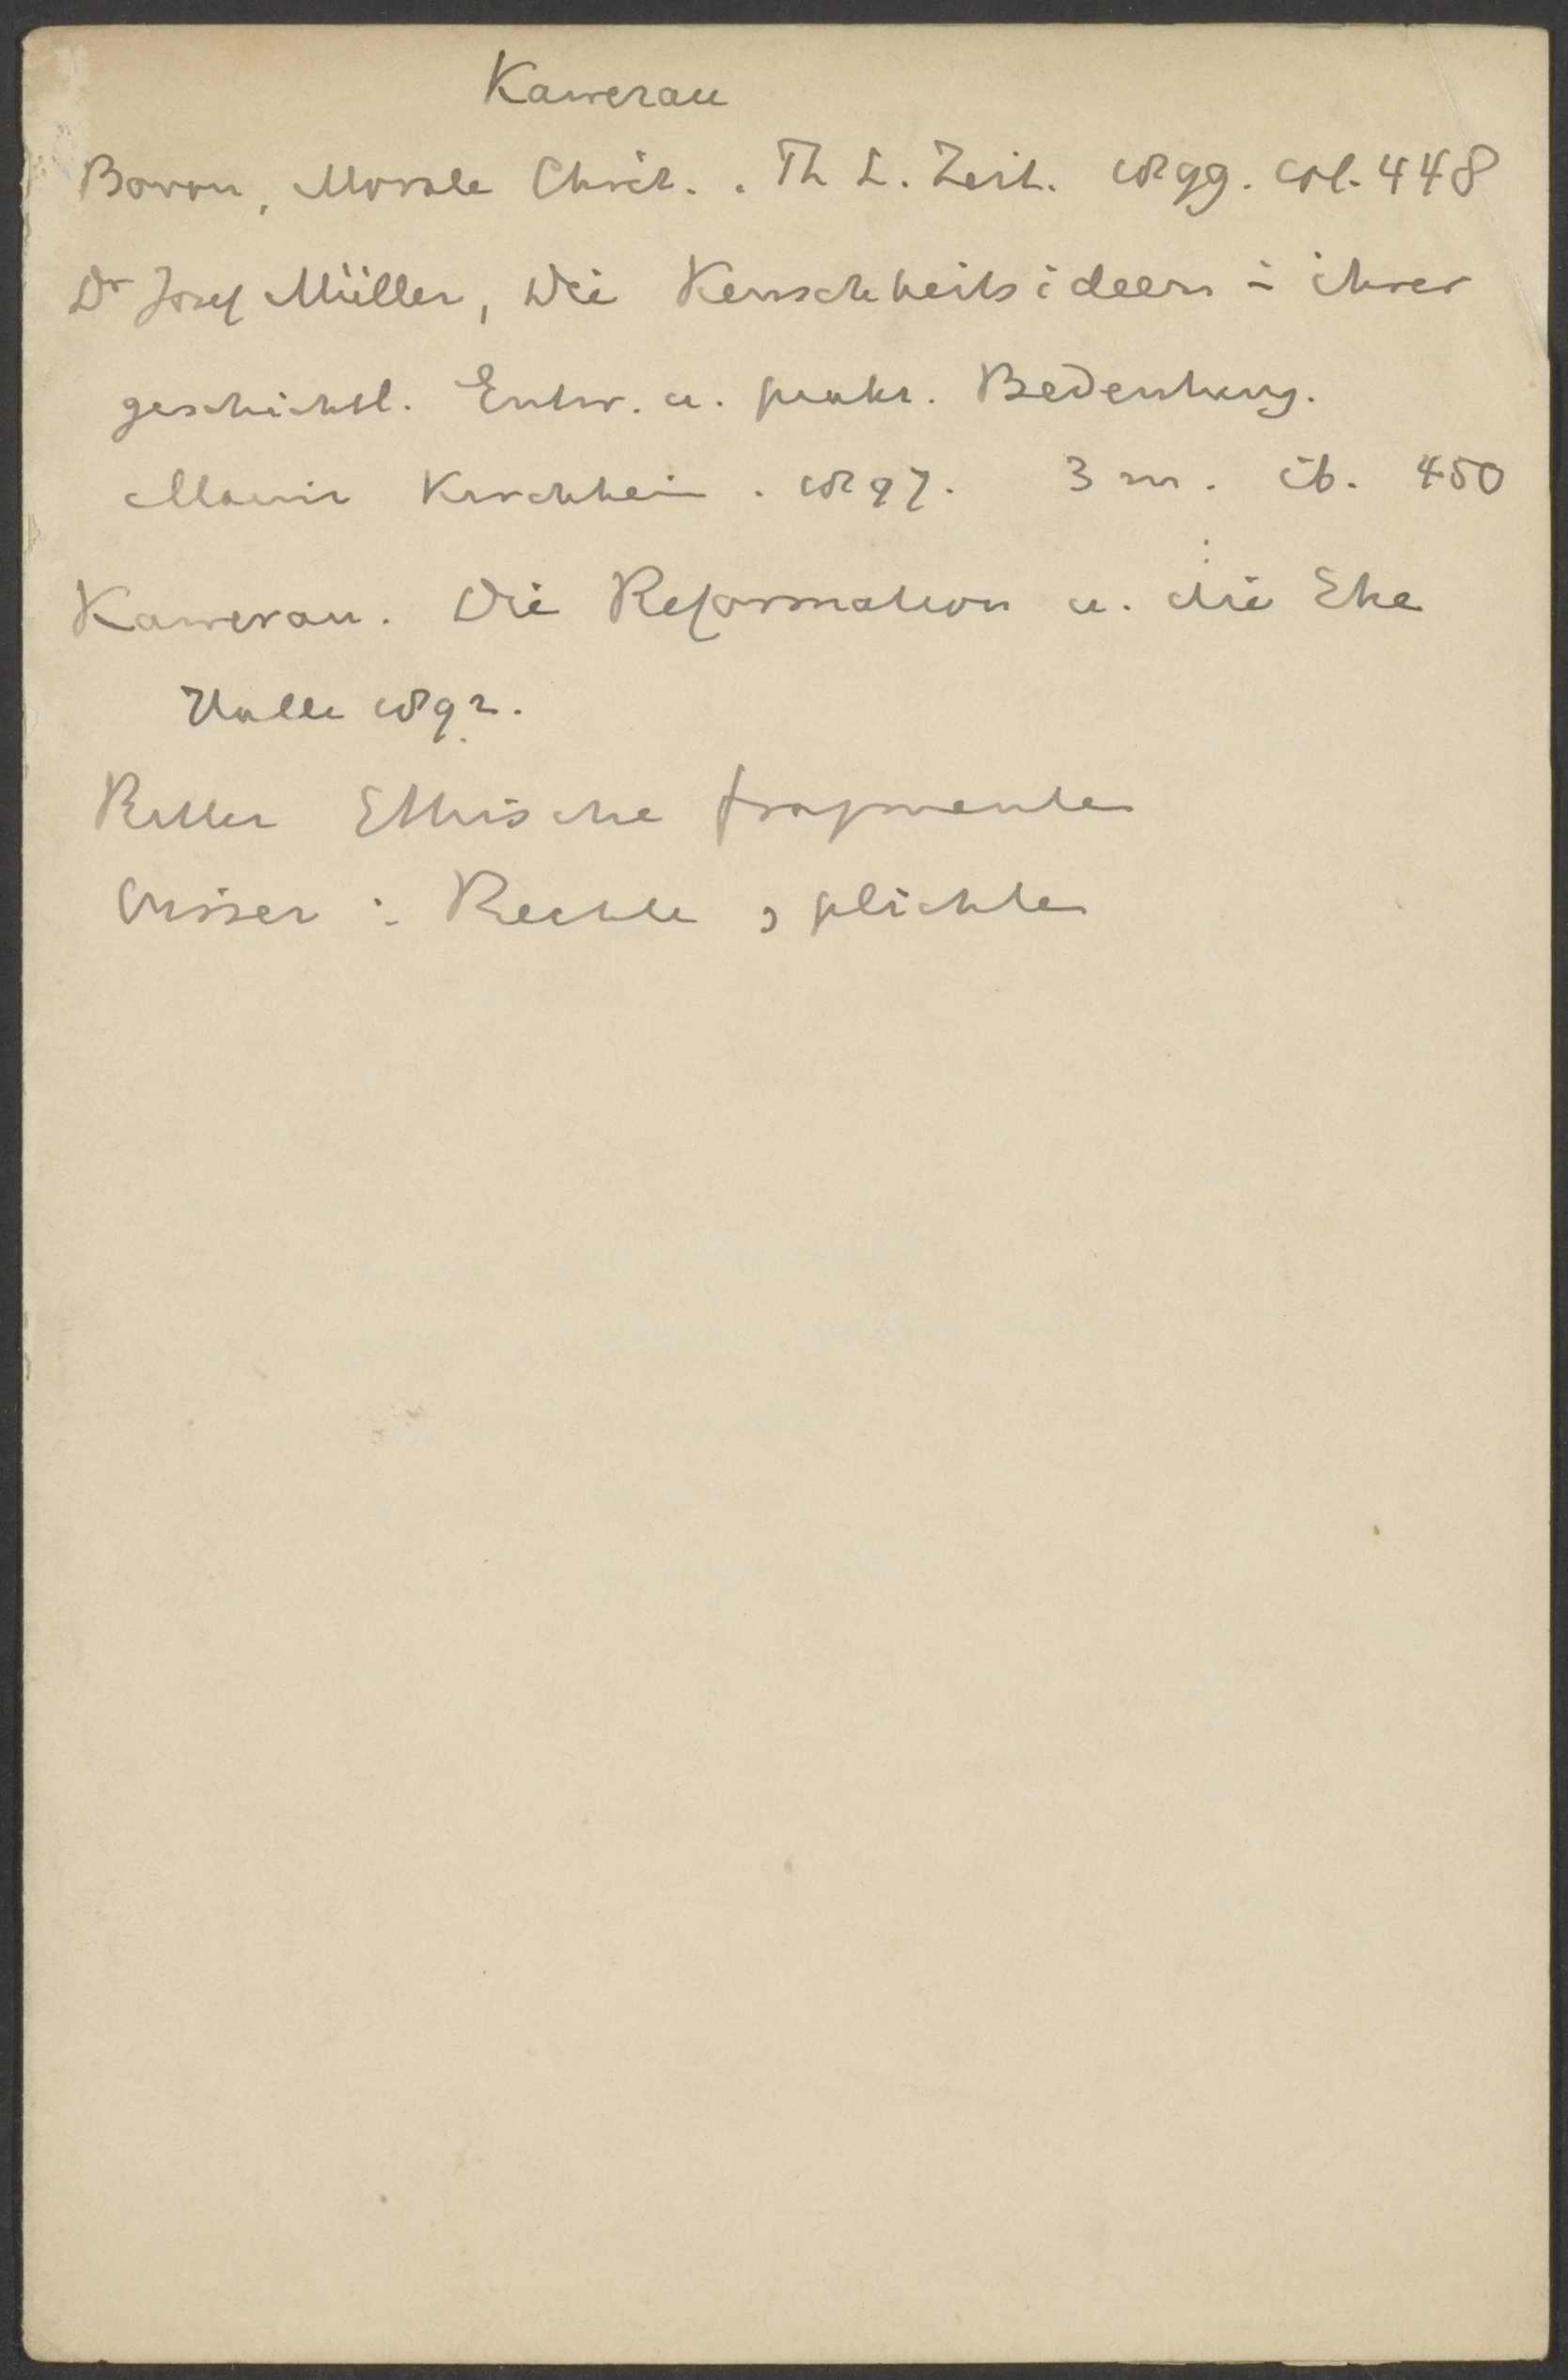 Kawerau
Bovon, Morale Chrét.. Th L. Zeit. 1899. col. 448
Dr Josef Müller, Die Keuschheitsideen in ihrer
geschichtl. Entw. u. prakt. Bedeutung.
Mainz Kirchheim. 1897. 3 m. ib. 450
Kawerau. Die Reformation u. die Ehe
Halle 1892.
Ritter Ethische fragmenten
Visser: Rechte, plichten